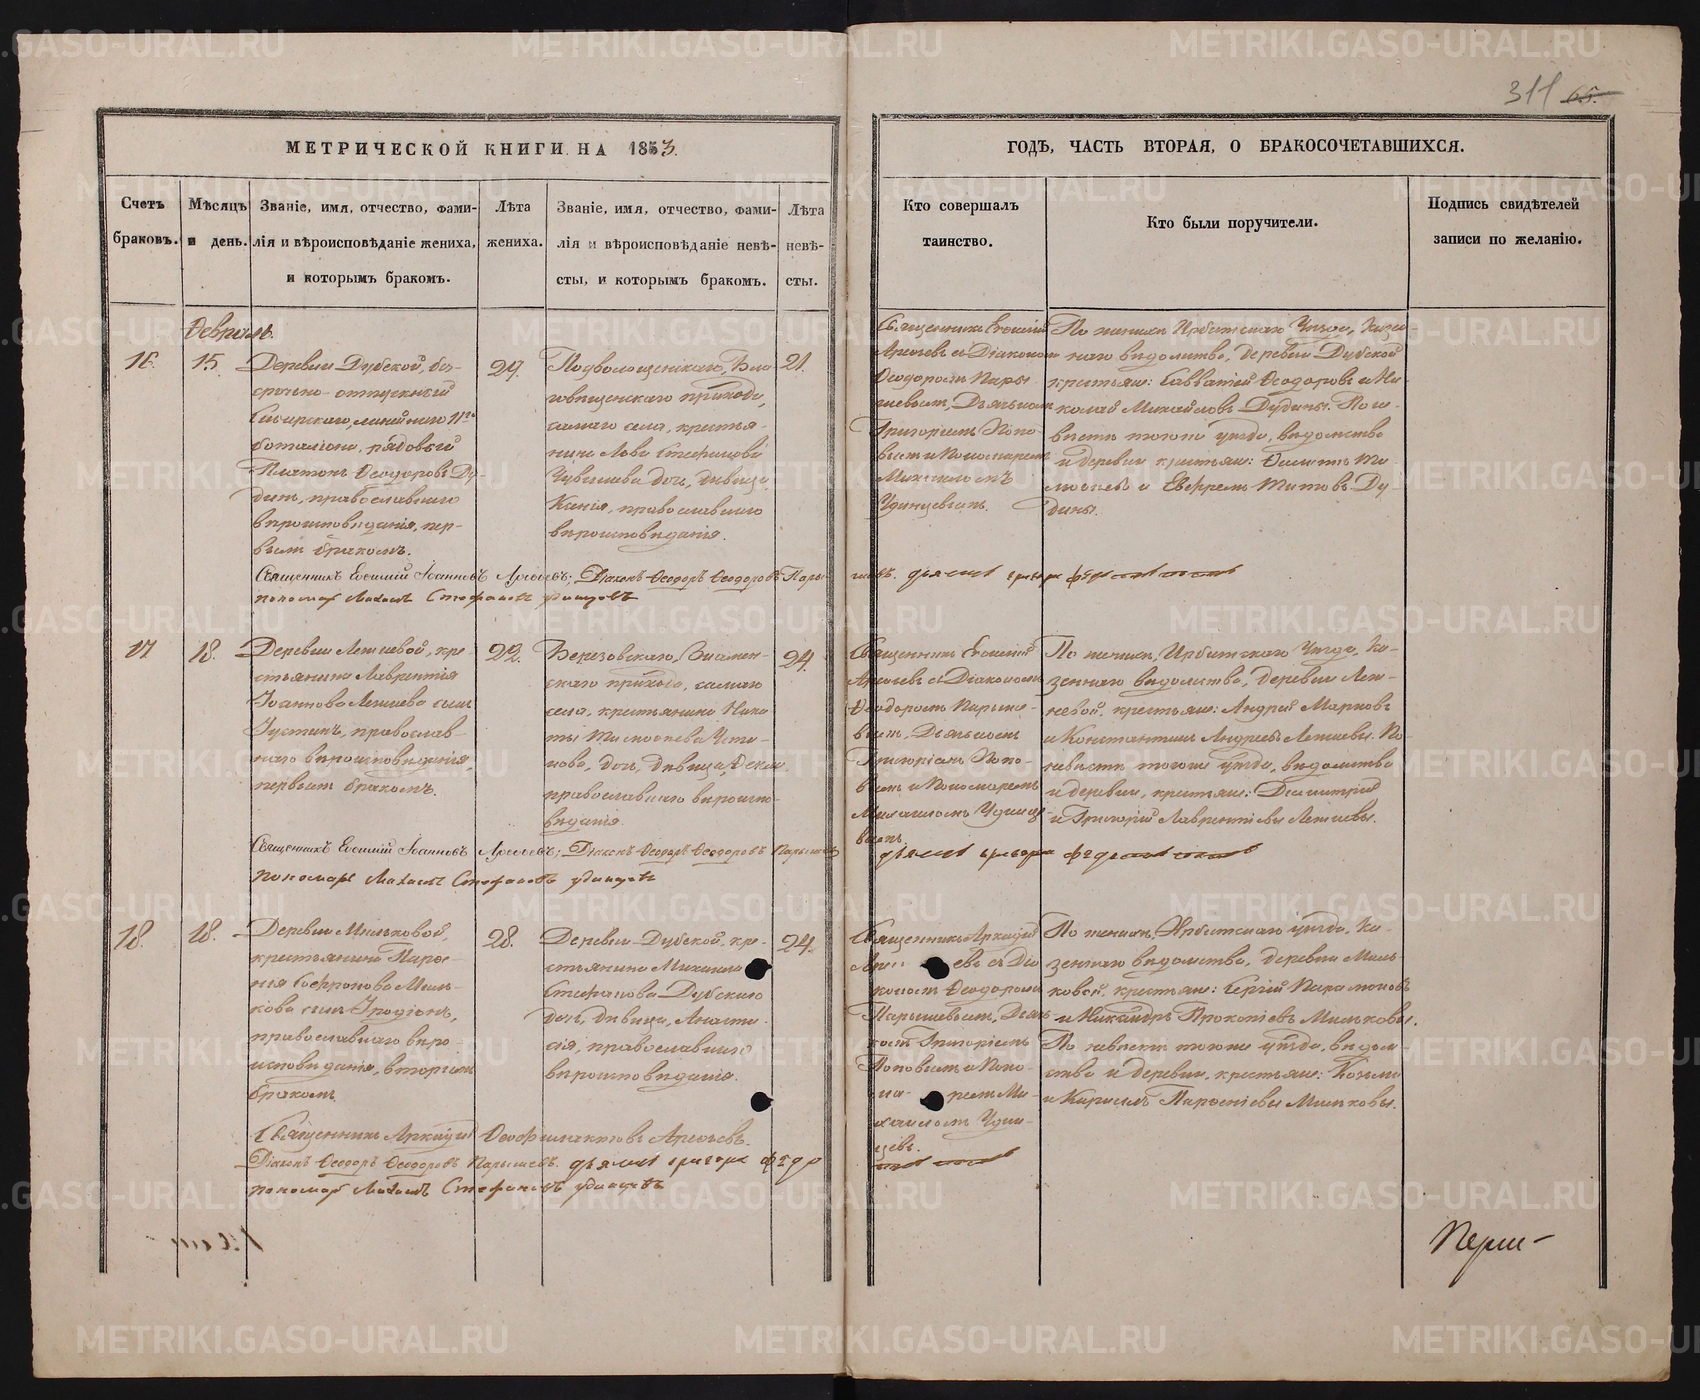 311 65.
МЕТРИЧЕСКОЙ КНИГИ НА 1853.
Счетъ браковъ.
Мѣсяцъ и день.
Званіе, имя, отчество, фами-
лія и вѣроисповѣданіе жениха,
и которымъ бракомъ.
Лѣта
жениха.
Званіе, имя, отчество, фами-
лія и вѣроисповѣданіе невѣ-
сты, и которымъ бракомъ.
Лѣта
невѣ-
сты.
ГОДЪ, ЧАСТЬ ВТОРАЯ, О БРАКОСОЧЕТАВШИХСЯ.
Кто совершалъ
таинство.
Кто были поручители.
Подпись свидѣтелей
записи по желанію.
Февраль.
16.
15.
Деревни Дубской, без-
срочно-отпускный
Сибирскаго, линейнаго 11го
баталіона, рядовый
Платонъ Ѳеодоровъ Ду-
бинъ, православнаго
вѣроисповѣданія, пер-
вымъ бракомъ.
29.
Подволошенскаго, Бла-
говѣщенскаго прихода,
самаго села, крестья-
нина Льва Стефанова
дочь, дѣвица
Ксенія, православнаго
вѣроисповѣданія.
21.
Священникъ Евѳимій
Арефьевъ съ Діакономъ
Ѳеодоромъ Пары-
шевымъ, Дьячкомъ
Григоріемъ Попо-
вымъ и Пономаремъ
Михаиломъ
Удинцевымъ.
По женихѣ Ирбитскаго Уѣзда, Казен-
наго вѣдомства, деревни Дубской
крестьяне: Савватій Ѳеодоровъ и Ни-
колай Михайловъ Дубины. По не-
вѣстѣ тогоже уѣзда, вѣдомства
и деревни крестьяне: Филиппъ Ти-
моѳеевъ и Евфремъ Титовъ Ду-
бины.
Священникъ Евѳимій Іоанновъ Арефьевъ; Діаконъ Ѳеодоръ Ѳеодоровъ Пары-
шевъ. дьячекъ григорій
пономарь Михаилъ Стефановъ удинцовъ
17
18.
Деревни Лепневой, кре-
стьянина Лаврентія
Іоаннова Лепнева сынъ
Іустинъ, православ-
наго вѣроисповѣданія,
первымъ бракомъ.
22.
Березовскаго, Знамен-
скаго прихода, самаго
села, крестьянина Ники-
ты Тимоѳеева Усти-
нова, дочь, дѣвица,
православнаго вѣроиспо-
вѣданія.
24.
Священникъ Евѳимій
Арефьевъ съ Діакономъ
Ѳеодоромъ Парыше-
вымъ, Дьячкомъ
Григоріемъ Попо-
вымъ и Пономаремъ
Михаиломъ Удинце-
вымъ.
По женихѣ, Ирбитскаго Уѣзда, Ка-
зеннаго вѣдомства, деревни Леп-
невой, крестьяне: Андрей Марковъ
и Константинъ Андреевъ Лепневы. По
невѣстѣ тогоже уѣзда, вѣдомства
и деревни, крестьяне: Димитрій
и Григорій Лаврентіевы Лепневы.
Священникъ Евѳимій Іоанновъ Арефьевъ; Діаконъ Ѳеодоръ Ѳеодоровъ Парышевъ
дьячекъ григорій
пономарь Михаилъ Стефановъ удинцовъ
18.
18.
Деревни Мильковой,
крестьянина Парѳе-
нія Софронова Миль-
кова сынъ Иродіонъ,
православнаго вѣро-
исповѣданія, вторымъ
бракомъ.
28.
Деревни Дубской, кре-
стьянина Михаила
Стефанова Дубскаго
дочь, дѣвица, Анаста-
сія, православнаго
вѣроисповѣданія.
24.
Священникъ Аркадій
Арефьевъ съ Діа-
кономъ Ѳеодоромъ
Парышевымъ, Дьяч-
комъ Григоріемъ
Поповымъ и Поно-
маремъ Ми-
хаиломъ Удин-
цевъ.
По женихѣ, Ирбитскаго уѣзда, Ка-
зеннаго вѣдомства, деревни Миль-
ковой, крестьяне: Сергій Парамоновъ
и Никандръ Прокопіевъ Мильковы.
По невѣстѣ тогоже уѣзда, вѣдом-
ства и деревни, крестьяне: Козьма
и Кириллъ Парѳеніевы Мильковы.
Священникъ Аркадій Ѳеофилактовъ Арефьевъ.
Діаконъ Ѳеодоръ Ѳеодоровъ Парышевъ. дьячекъ григорій
пономарь Михаилъ Стефановъ удинцовъ
METRIKI.GASO-URAL.RU